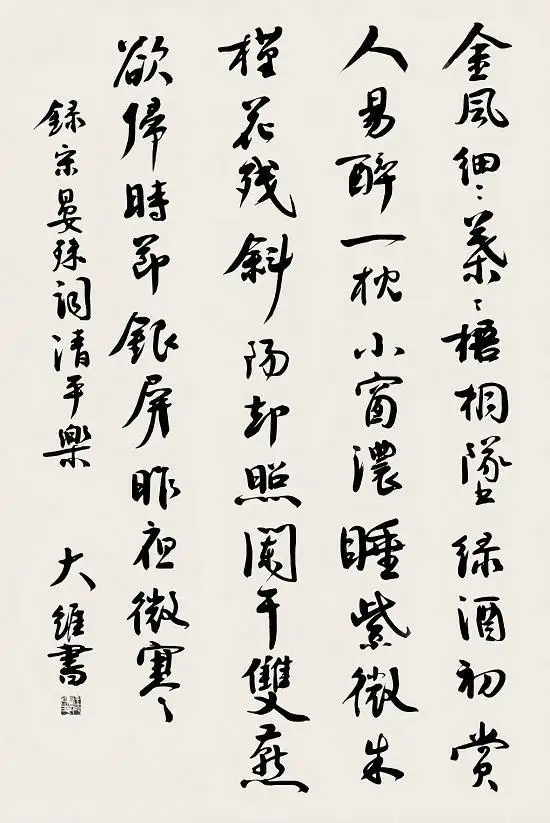 金風細〻葉〻梧桐墜緑酒初賞
人易醉一枕小窗濃睡紫微朱
槿花残斜陽却照闌干雙燕
欲歸時節銀屏昨夜微寒
録宋晏殊詞清平樂 大維書